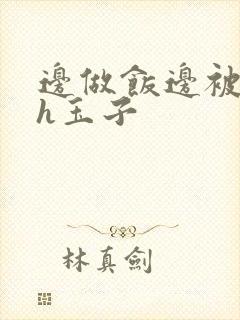 邊做飯邊被
h玉子
林真劍